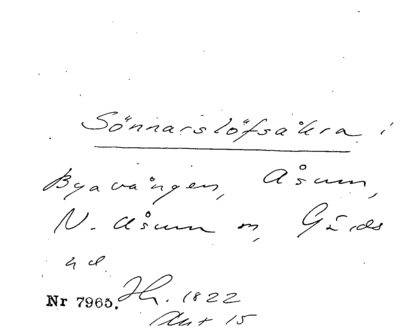 Sönnarslöfsåkra i
Byavången, Åsum,
N. Åsum sn, Gärds
hd.
Nr 7965. Hh. 1822
Akt 15